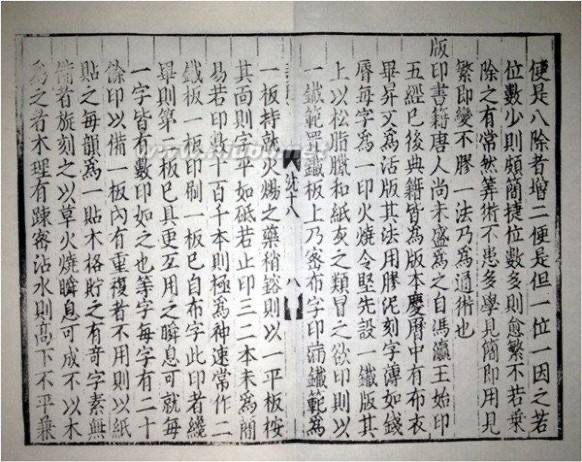 便是八除者增二便是但一位一因之若
位數少則頗簡捷位數多則愈繁不若乗
除之有常然筭術不患多學見簡即用見
繁即變不膠一法乃為通術也
版印書籍唐人尚未盛為之自馮瀛王始印
五經已後典籍皆為版本慶曆中有布衣
畢昇又為活版其法用膠泥刻字薄如錢
脣每字為一印火燒令堅先設一鐵版其
上以松脂臘和紙灰之類冒之欲印則以
一鐵範置鐵板上乃密布字印滿鐵範為
沈十八
八
一板持就火煬之藥稍鎔則以一平板按
其面則字平如砥若止印三二本未為簡
易若印數十百千本則極為神速常作二
鐵板一板印刷一板已自布字此印者纔
畢則第二板已具更互用之瞬息可就每
一字皆有數印如之也等字每字有二十
餘印以備一板內有重複者不用則以紙
貼之每韻為一貼木格貯之有奇字素無
備者旋刻之以草火燒瞬息可成不以木
為之者木理有踈密沾水則高下不平兼